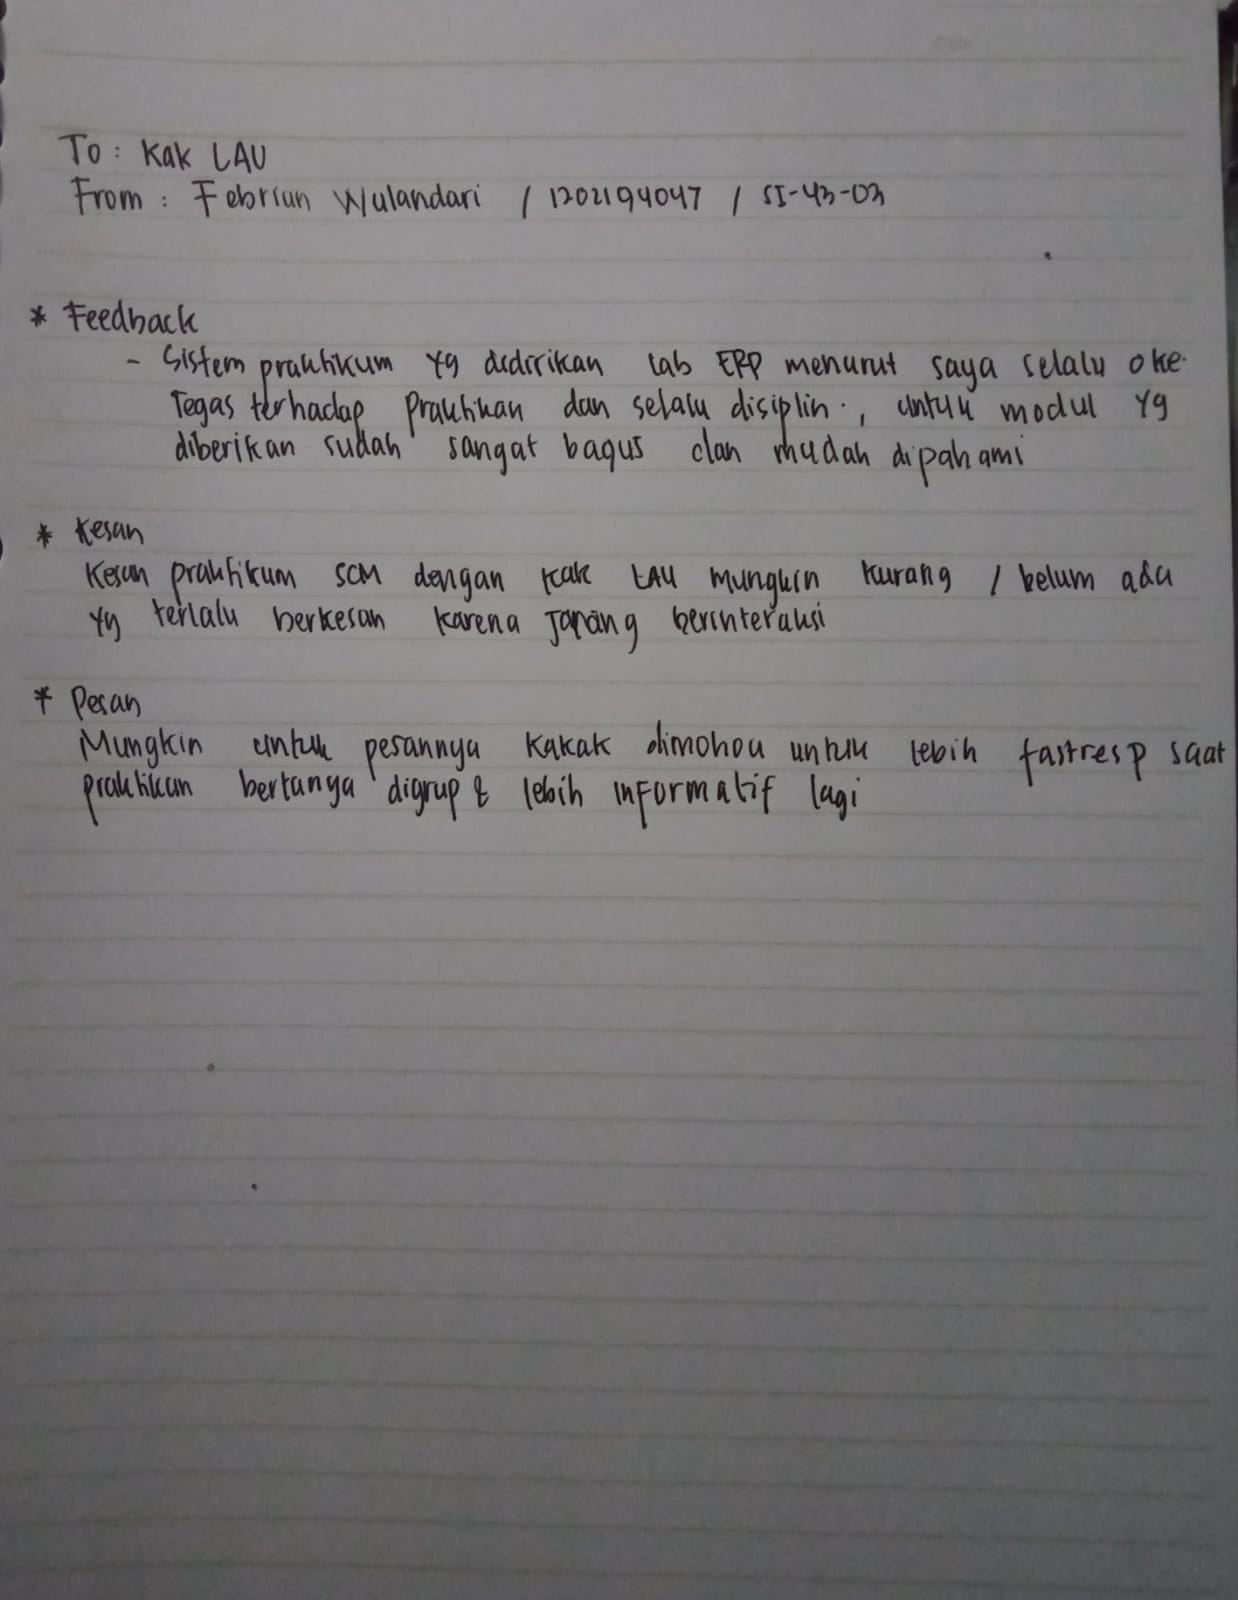 Date
To : Kak LAU
From : Febrian Wulandari / 1202194047 / SI-43-03
* Feedback
- Sistem praktikum yg didirikan lab ERP menurut saya selalu oke.
Tegas terhadap praktikan dan selalu disiplin. , untuk modul yg
diberikan sudah sangat bagus dan mudah dipahami
* Kesan
Kesan praktikum SCM dengan kak LAU mungkin kurang / belum ada
yg terlalu berkesan karena jarang berinteraksi
* Pesan
Mungkin untuk pesannya kakak dimohon untuk lebih fastresp saat
praktikan bertanya digrup & lebih informatif lagi